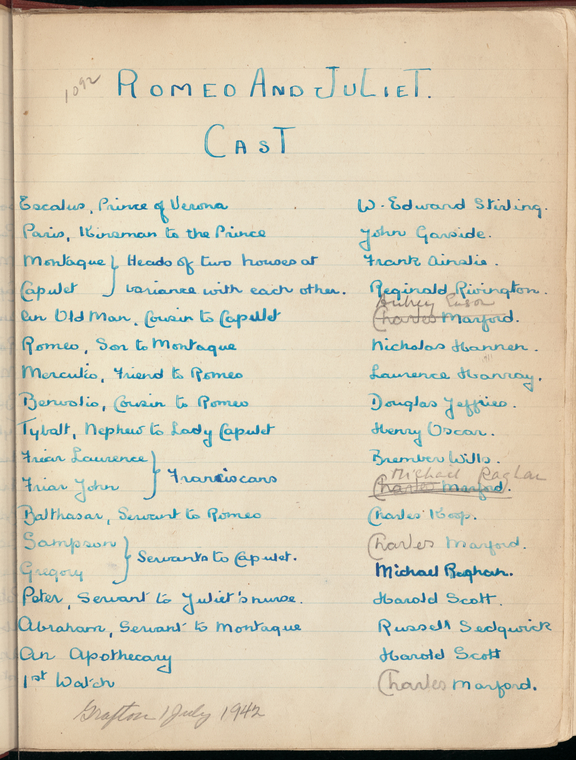 1092
ROMEO AND JULIET.
CAST
Escalus, Prince of Verona W. Edward Stirling.
Paris, Kinsman to the Prince John Garside.
Montague } Heads of two houses at Frank Ainslie.
Capulet } variance with each other. Reginald Rivington.
Aubrey
An Old Man, Cousin to Capulet Charles Marford.
Romeo, Son to Montague Nicholas Hannen.
Mercutio, Friend to Romeo Laurence Hanray.
Benvolio, Cousin to Romeo Douglas Jeffries.
Tybalt, Nephew to Lady Capulet Henry Oscar.
Friar Laurence } Brember Wills.
Franciscans Michael Raghan
Friar John } Charles Marford.
Balthasar, Servant to Romeo Charles Koop.
Sampson } Charles Marford.
Servants to Capulet.
Gregory } Michael Raghan.
Peter, Servant to Juliet's nurse. Harold Scott.
Abraham, Servant to Montague Russell Sedgwick
An Apothecary Harold Scott
1st Watch Charles Marford.
Grafton 1 July 1942